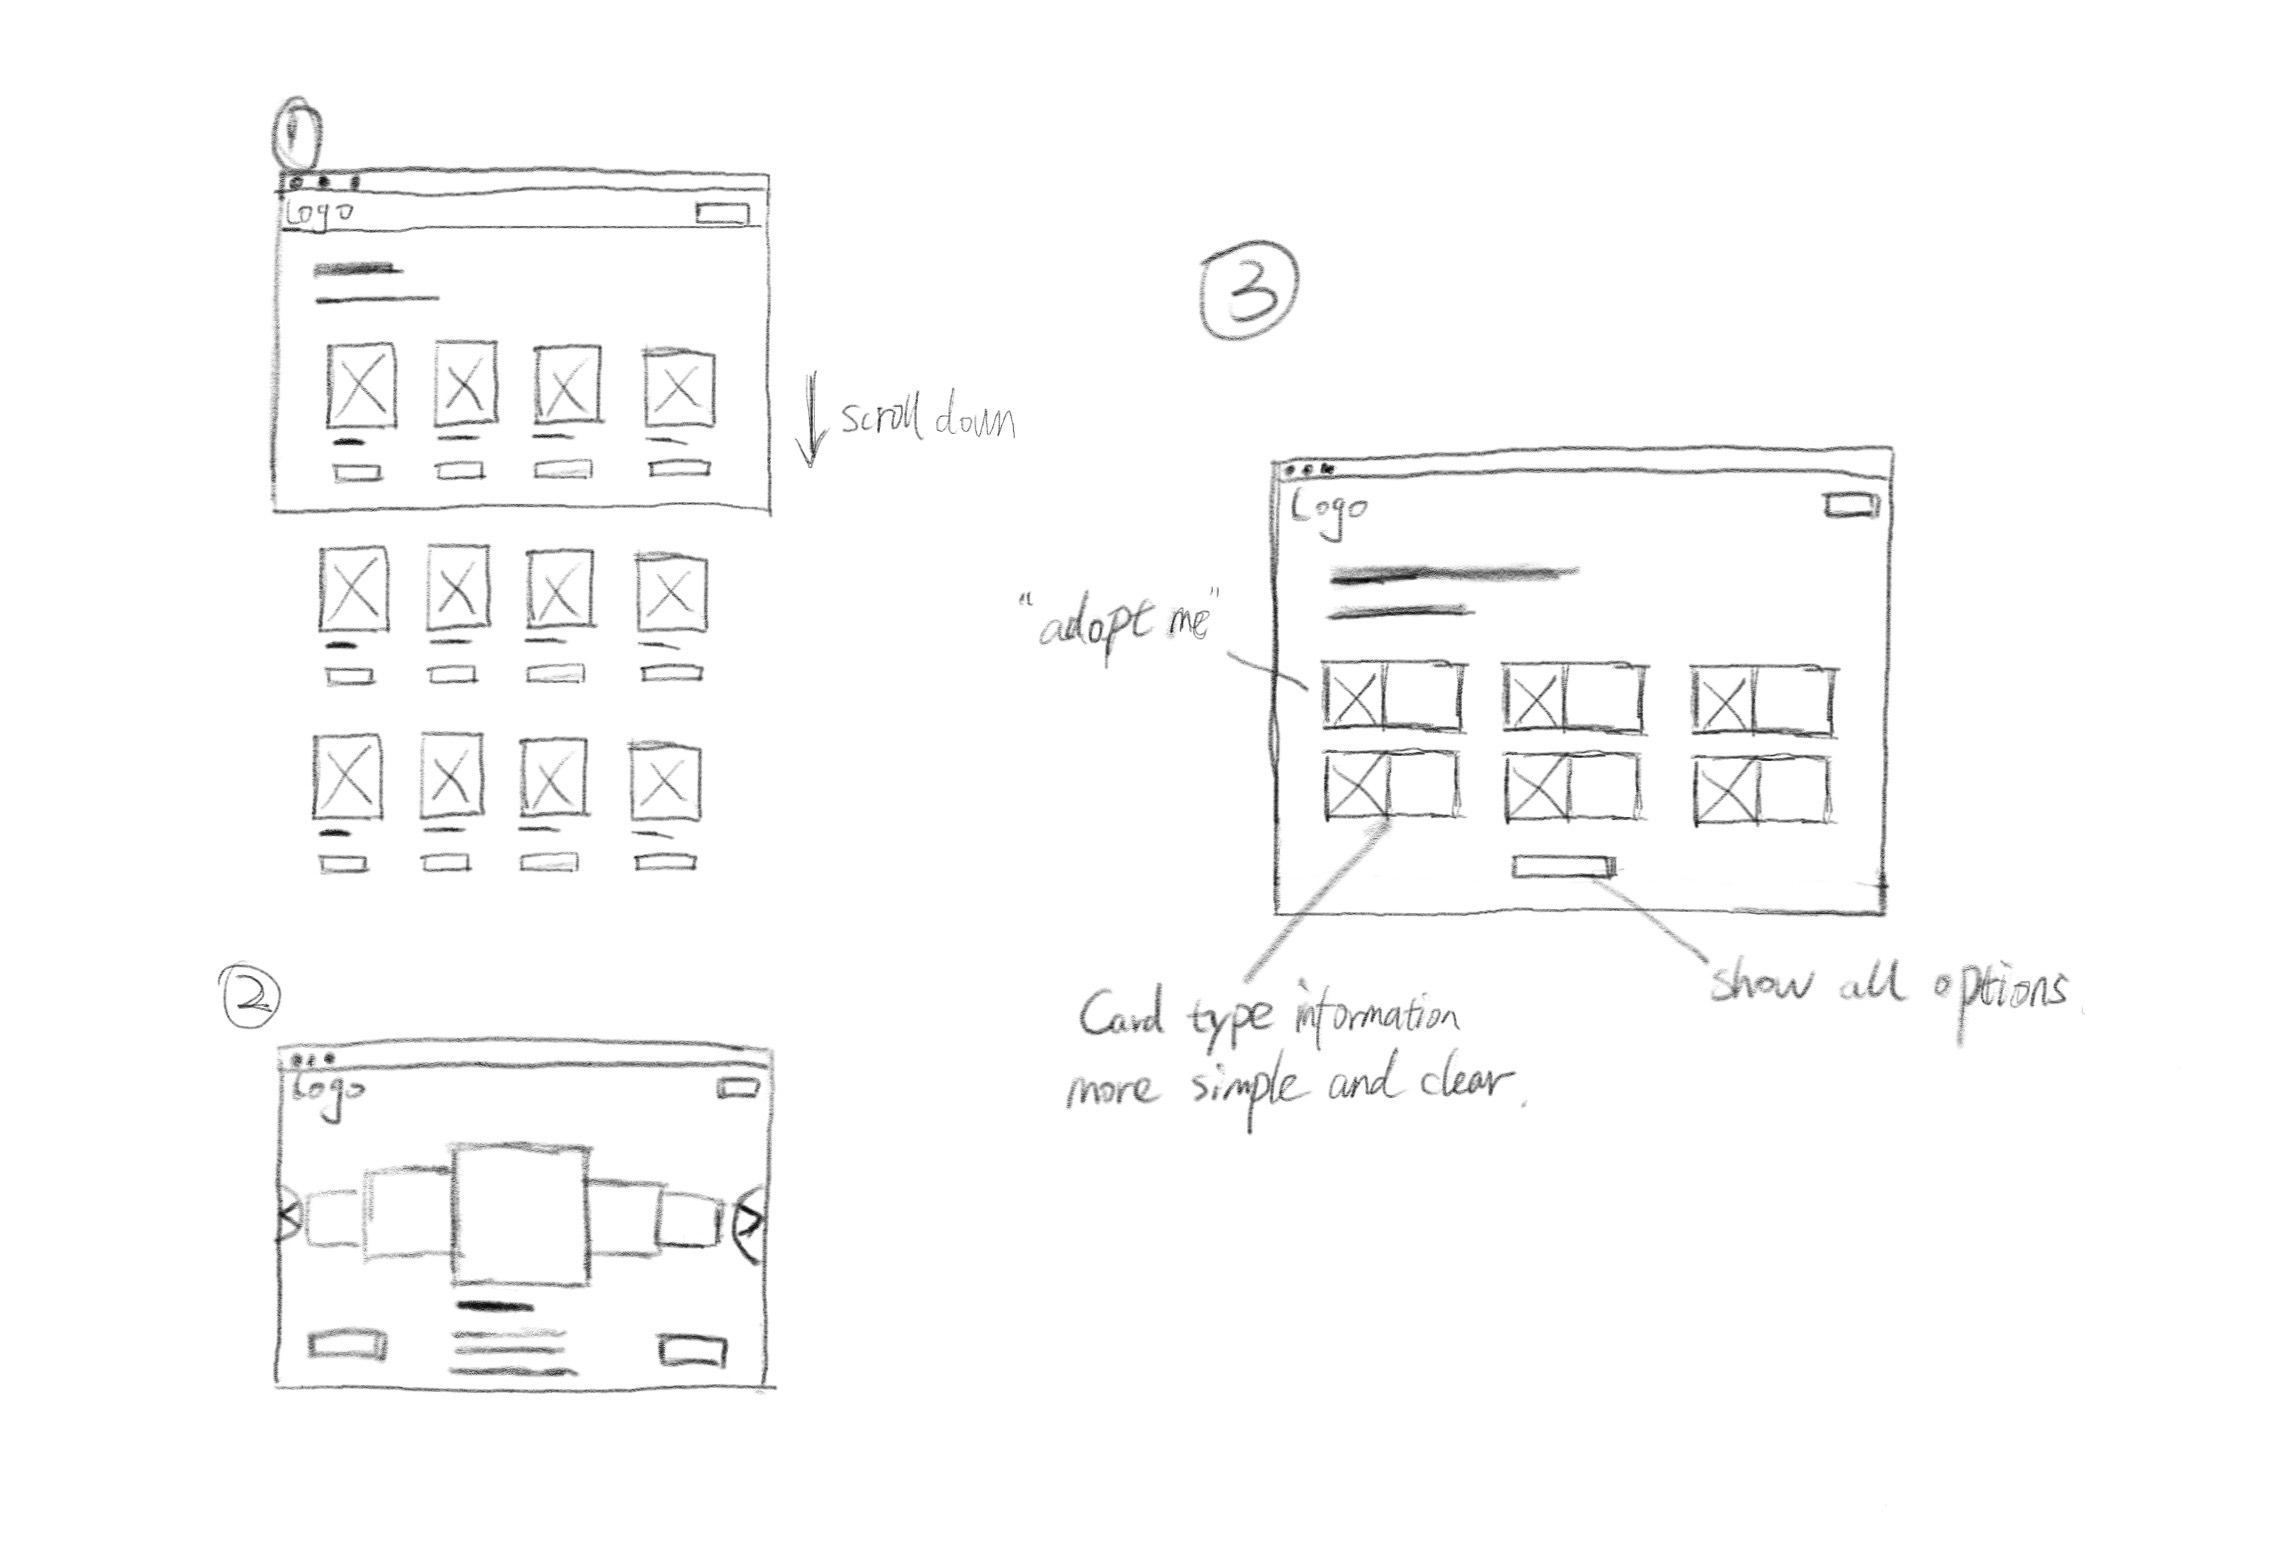 1
Logo
scroll down
2
Logo
3
Logo
"adopt me"
Card type information
more simple and clear.
show all options.